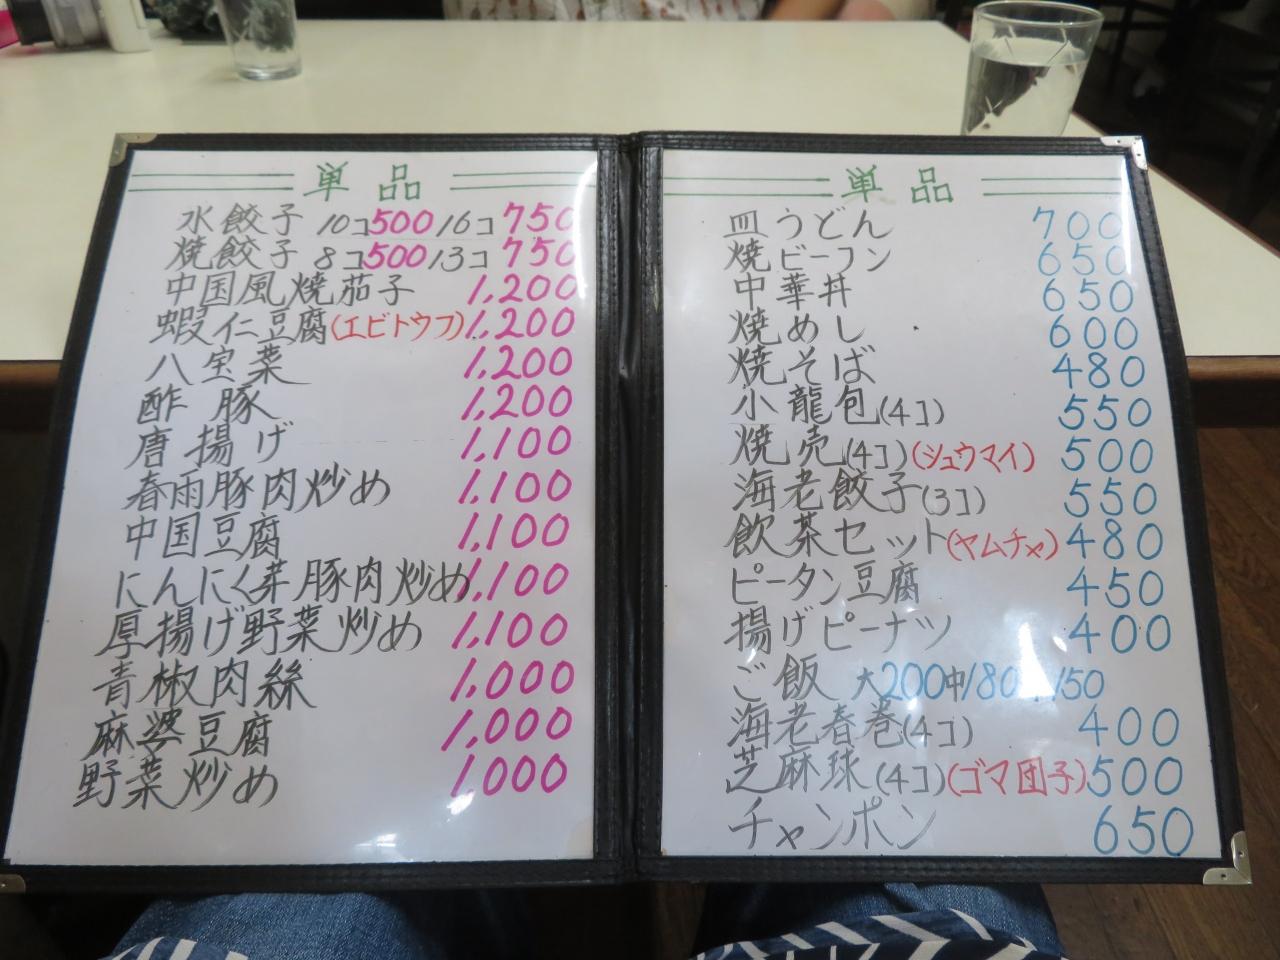 単品
水餃子 10コ500/16コ750
焼餃子 8コ500/13コ750
中国風焼茄子 1,200
蝦仁豆腐(エビトウフ) 1,200
八宝菜 1,200
酢豚 1,200
唐揚げ 1,100
春雨豚肉炒め 1,100
中国豆腐 1,100
にんにく芽豚肉炒め 1,100
厚揚げ野菜炒め 1,100
青椒肉絲 1,000
麻婆豆腐 1,000
野菜炒め 1,000
単品
皿うどん 700
焼ビーフン 650
中華丼 650
焼めし 600
焼そば 480
小龍包(4コ) 550
焼売(4コ)(シュウマイ) 500
海老餃子(3コ) 550
飲茶セット(ヤムチャ) 480
ピータン豆腐 450
揚げピーナツ 400
ご飯 大200中180 150
海老春巻(4コ) 400
芝麻球(4コ)(ゴマ団子) 500
チャンポン 650